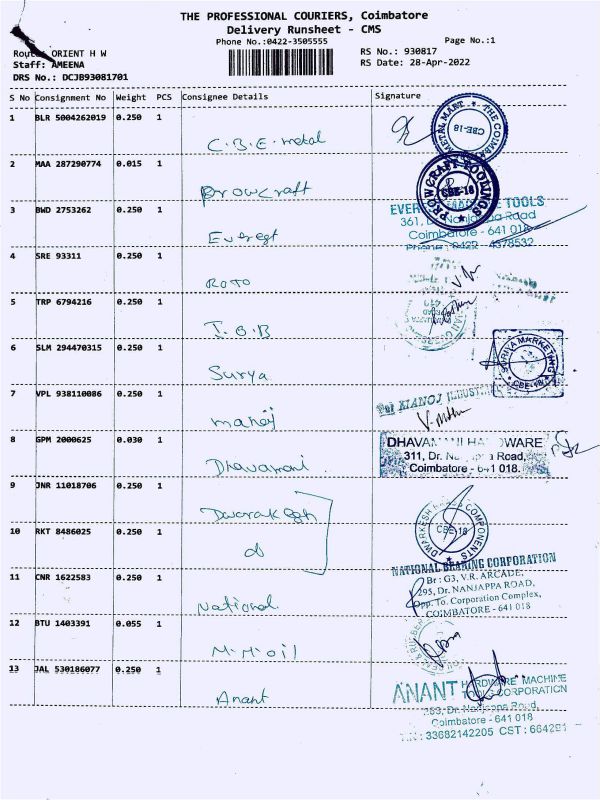 THE PROFESSIONAL COURIERS, Coimbatore
Delivery Runsheet - CMS
Phone No.:0422-3505555
Page No.:1
Route: ORIENT H W
RS No.: 930817
Staff: AMEENA
RS Date: 28-Apr-2022
DRS No.: DCJB93081701
S No Consignment No Weight PCS Consignee Details Signature
1 BLR 5004262019 0.250 1
C.B.E. metal
METAL MART THE COIMBA
CBE-18
2 MAA 287290774 0.015 1
Prowcraft
PROWCRAFT TOOLINGS
CBE-18
3 BWD 2753262 0.250 1
Everest
EVER TOOLS
361, Road
Coimbatore - 641 018
Phone: 0422 - 4378532
4 SRE 93311 0.250 1
Roto
5 TRP 6794216 0.250 1
I.O.B
6 SLM 294470315 0.250 1
Surya
SURIYA MARKETING
CBE-18
7 VPL 938110086 0.250 1
manoj
For
8 GPM 2000625 0.030 1
Dhavamani
DHAVAMANI HARDWARE
311, Dr. Nanjappa Road,
Coimbatore - 641 018.
9 JNR 11018706 0.250 1
DWARKESH COMPONENTS
CBE-18
10 RKT 8486025 0.250 1
11 CNR 1622583 0.250 1
National
NATIONAL BEARING CORPORATION
Br : G3, V.R. ARCADE,
295, Dr. NANJAPPA ROAD,
Opp. To. Corporation Complex,
COIMBATORE - 641 018
12 BTU 1403391 0.055 1
M.M.oil
13 JAL 530186077 0.250 1
Anant
ANANT HARDWARE MACHINE
TOOLS CORPORATION
Dr. Nanjappa Road,
Coimbatore - 641 018
33682142205 CST : 664291